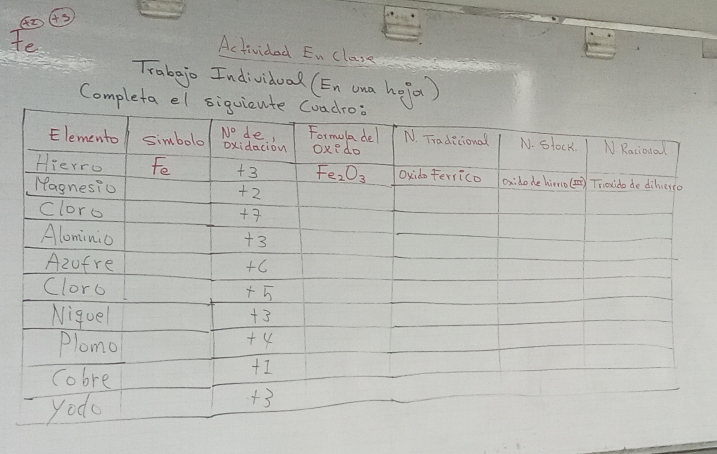 +2 +3
Fe
Actividad En Clase
Trabajo Individual (En una hoja)
Completa el siguiente Cuadro:
Elemento simbolo N° de oxidación Formula del oxido N. Tradicional N. Stock N Racional
Hierro Fe +3 Fe2O3 Oxido Ferrico Oxido de hierro (III) Trioxido de dihierro
Magnesio +2
Cloro +7
Aluminio +3
Azufre +6
Cloro +5
Niquel +3
Plomo +4
Cobre +1
Yodo +3